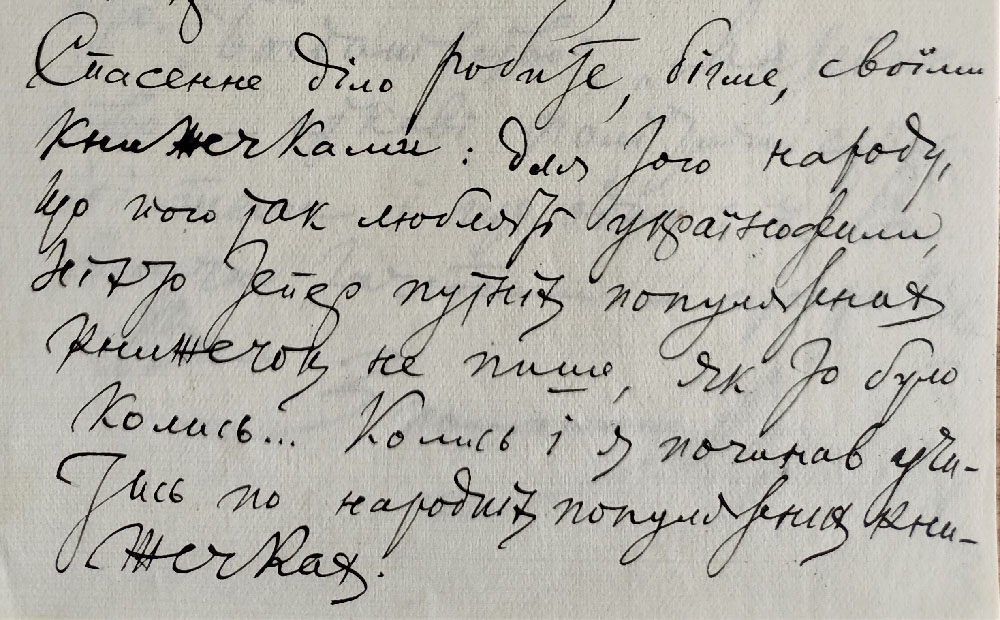 Спасенне діло робите, бігме, своїми
книжечками: для того народу,
що його так люблять українофили,
ніхто тепер путніх популярних
книжечок не пише, як то було
колись... Колись і я починав учи-
тись по народніх популярних кни-
жечках.